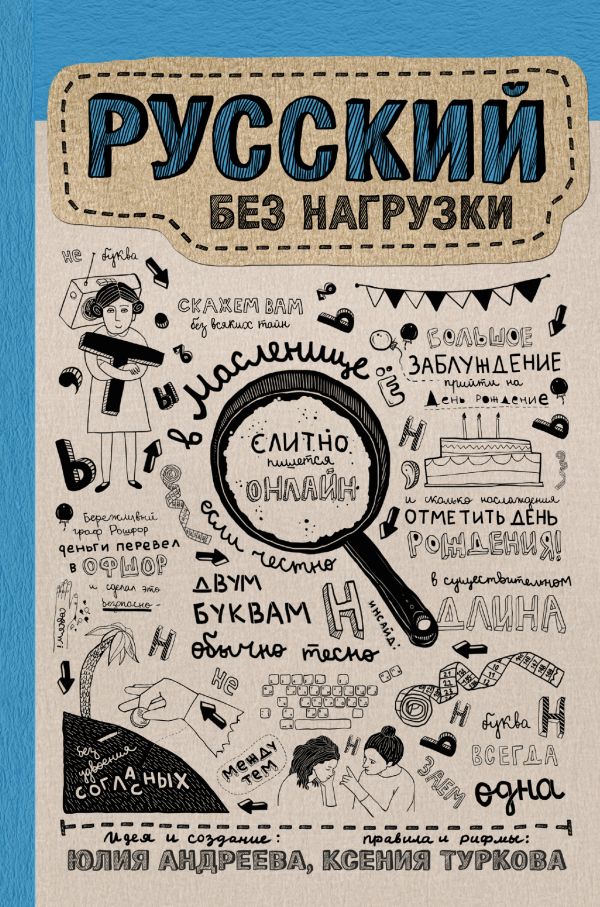 РУССКИЙ
БЕЗ НАГРУЗКИ
не буква
СКАЖЕМ ВАМ
без всяких тайн
в Масленице
СЛИТНО
пишется
ОНЛАЙН
БОЛЬШОЕ
ЗАБЛУЖДЕНИЕ
прийти на
День рождение
и сколько наслаждения
ОТМЕТИТЬ ДЕНЬ
РОЖДЕНИЯ!
Т
ы
ь
Ь
Ё
Н
Ь
Бережливый
граф Рошфор
деньги перевел
в ОФШОР
и сделал это
безопасно-
совсем!
если честно
ДВУМ
БУКВАМ
Н
обычно тесно
инсайд:
в существительном
ДЛИНА
буква Н
ВСЕГДА
одна
Н
не
без
удвоения
СОГЛАСНЫХ
С
МЕЖДУ
ТЕМ
Н
Ь
Н
ЗАЕМ
Идея и создание: правила и рифмы:
ЮЛИЯ АНДРЕЕВА, КСЕНИЯ ТУРКОВА